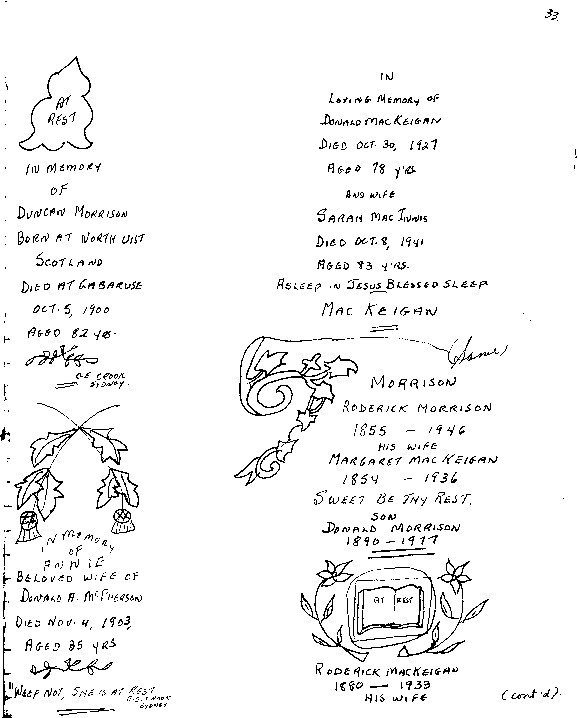 33.
AT
REST
IN MEMORY
OF
DUNCAN MORRISON
BORN AT NORTH UIST
SCOTLAND
DIED AT GABARUSE
OCT. 5, 1900
AGED 82 YRS.
SYDNEY.
IN MEMORY
OF
ANNIE
BELOVED WIFE OF
DONALD A. McPHERSON
DIED NOV. 4, 1903,
AGED 35 YRS
"WEEP NOT, SHE IS AT REST
SYDNEY
IN
LOVING MEMORY OF
DONALD MACKEIGAN
DIED OCT. 30, 1927
AGED 78 YRS.
AND WIFE
SARAH MAC INNIS
DIED OCT. 8, 1941
AGED 83 YRS.
ASLEEP IN JESUS BLESSED SLEEP
MAC KEIGAN
(Same)
MORRISON
RODERICK MORRISON
1855 - 1946
HIS WIFE
MARGARET MAC KEIGAN
1854 - 1936
SWEET BE THY REST.
SON
DONALD MORRISON
1890 - 1977
AT REST
RODERICK MACKEIGAN
1880 - 1933
HIS WIFE
(cont'd).